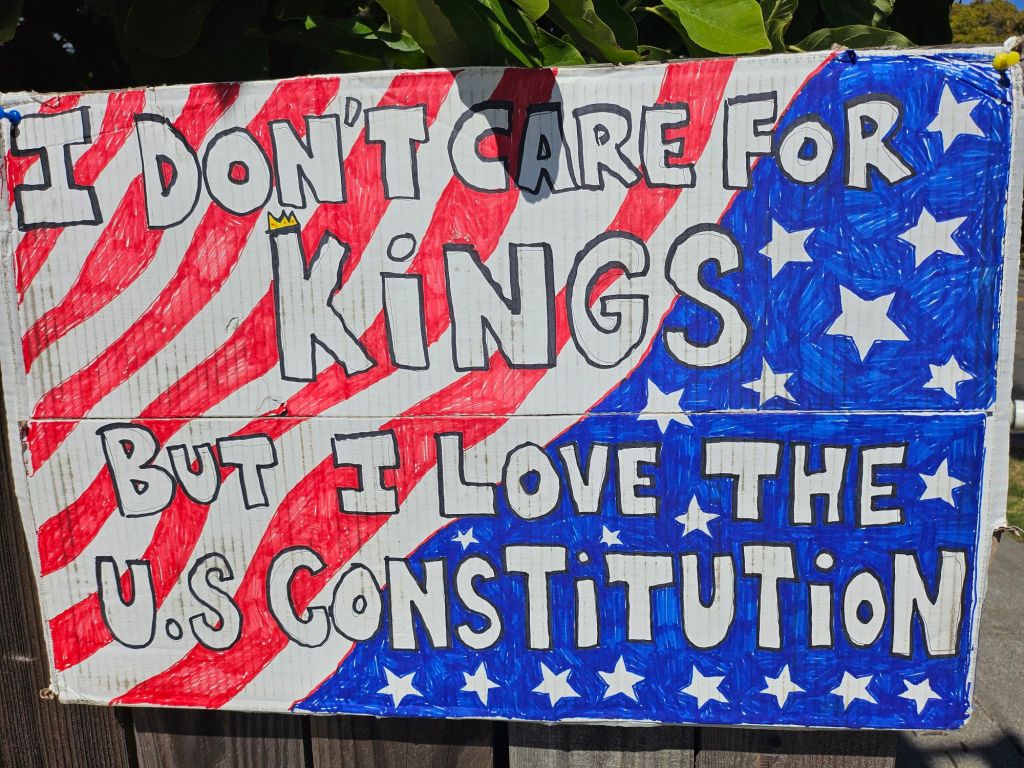 I DON'T CARE FOR
KiNGS
BUT I LOVE THE
U.S CONSTiTUTiON